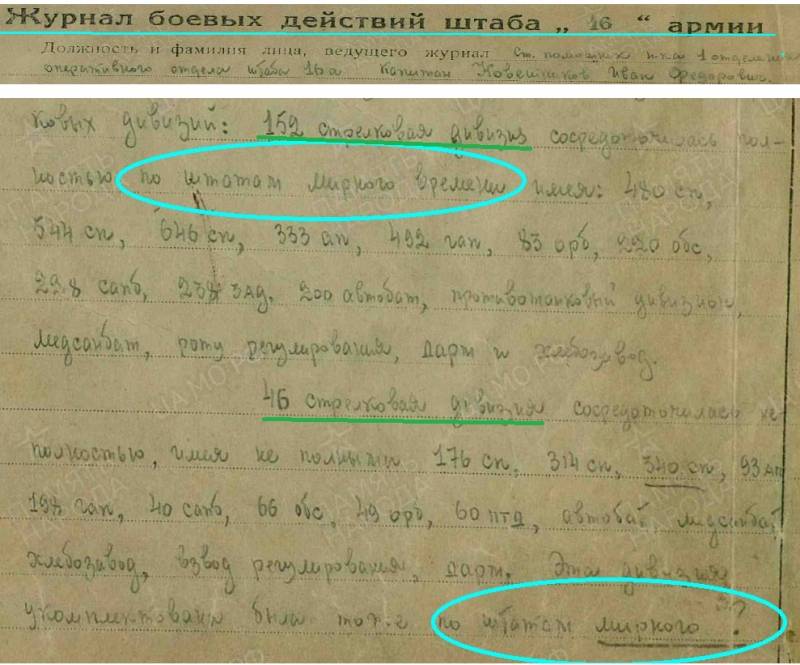 Журнал боевых действий штаба „ 16 “ армии
Должность и фамилия лица, ведущего журнал Ст. помощник н-ка 1 отделения
оперативного отдела штаба 16а Капитан Иван Федорович.
ковых дивизий: 152 стрелковая дивизия сосредоточилась пол-
ностью по штатам мирного времени имея: 480 сп,
544 сп, 646 сп, 333 ап, 492 гап, 83 орб, 220 обс,
228 сапб, 238 зад. 200 автобат, противотанковый дивизион,
Медсанбат, роту регулирования, дарм и хлебозавод.
46 стрелковая дивизия сосредоточилась не
полностью, имея не полными 176 сп, 314 сп, 340 сп, 93 ап
198 гап, 40 сапб, 66 обс, 49 орб, 60 птд, автобат медсанбат
хлебозавод, взвод регулирования, дарм. Эта дивизия
укомплектована была то же по штатам мирного ?